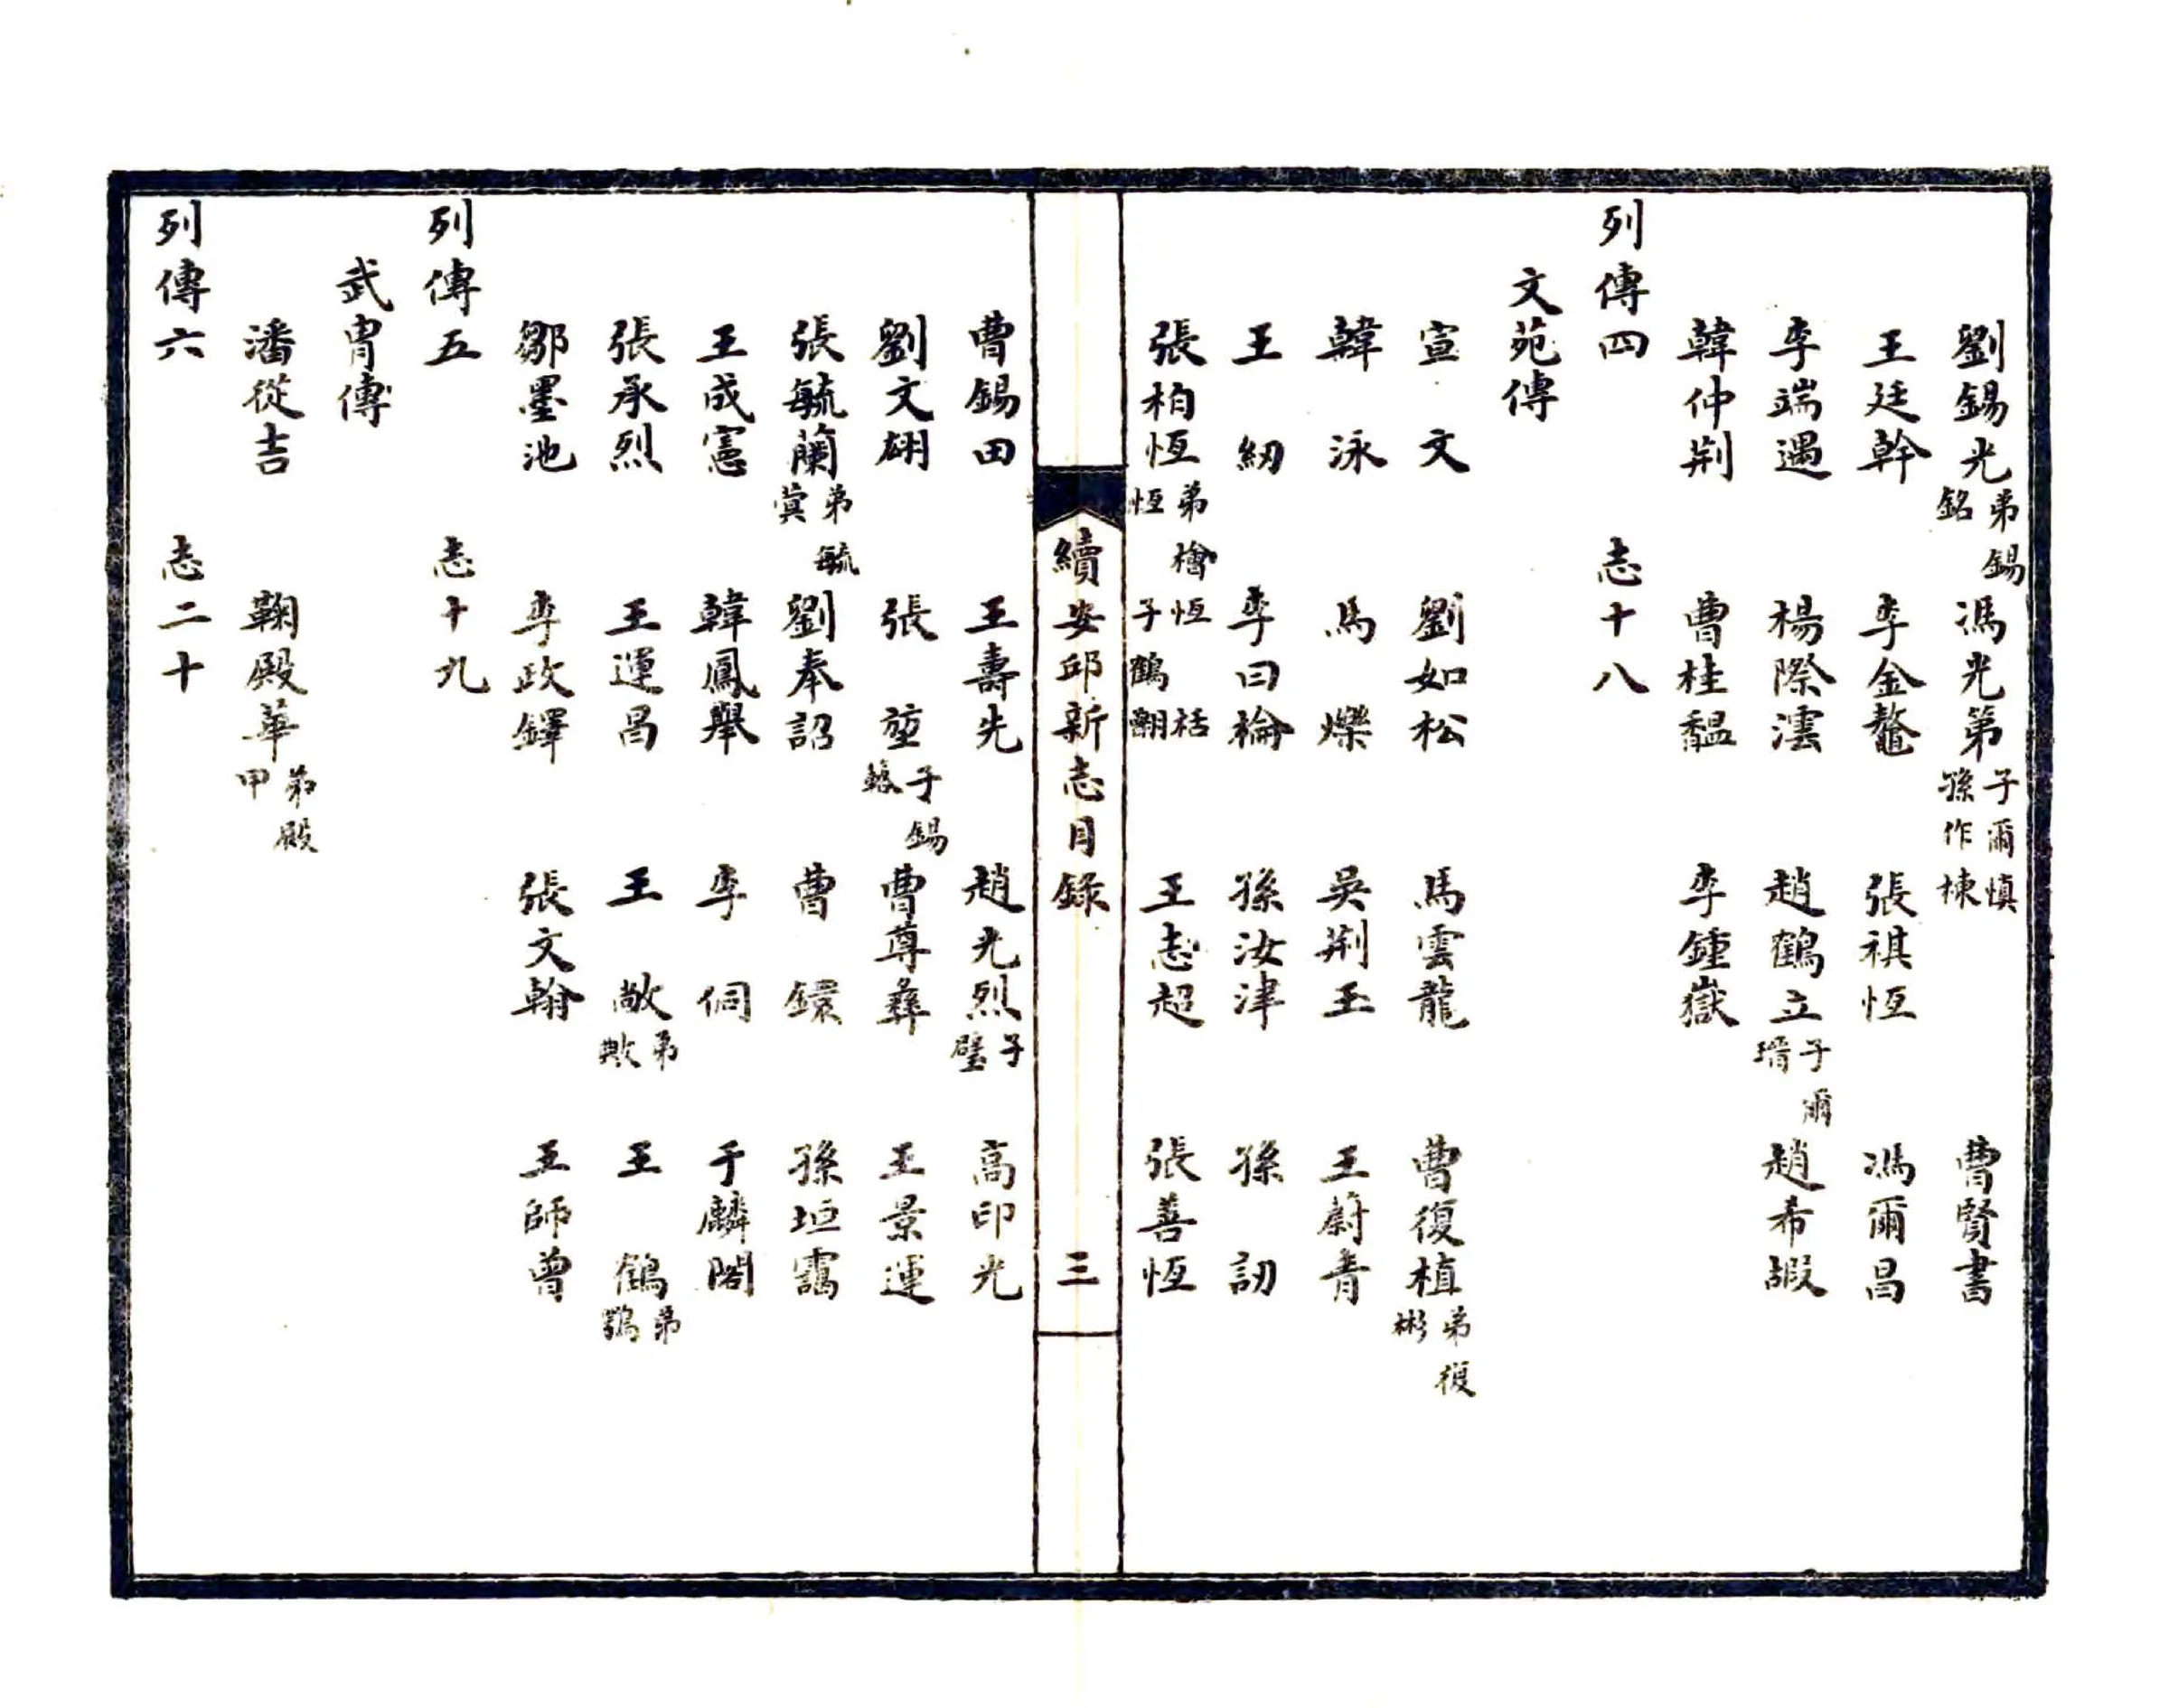 劉錫光弟錫銘 馮光第子爾慎孫作棟 曹賢書
王廷幹 李金鼇 張祺恆 馮爾昌
李端遇 楊際澐 趙鶴立子爾瑨 趙希嘏
韓仲荆 曹桂馧 李鍾嶽
列傳四 志十八
文苑傳
宣文 劉如松 馬雲龍 曹復植弟復彬
韓泳 馬爍 吳荆玉 王蔚青
王紉 李曰棆 孫汝津 孫訒
張柏恆弟檜恆恆栝恆子鶴翿 王志超 張善恆
續安邱新志目錄 三
曹錫田 王壽先 趙光烈子璧 高印光
劉文翩 張堃子錫 曹尊彝 王景運
張毓蘭弟毓蓂 劉奉詔 曹鐶 孫垣靄
王成憲 韓鳳舉 李侗 于麟閣
張承烈 王運昌 王敞弟 王鶴弟鶚
鄒墨池 李政鐸 張文翰 王師曾
列傳五 志十九
武胄傳
潘從吉 鞠殿華弟殿甲
列傳六 志二十